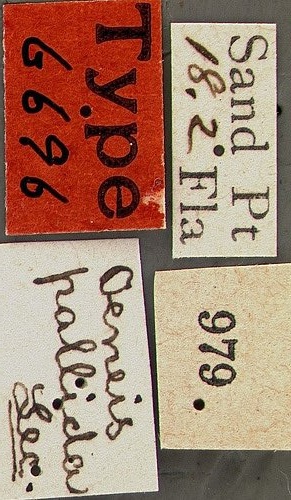 Type
6696
Sand Pt
18.2. Fla
Oeneis
pallida
Lec.
979.